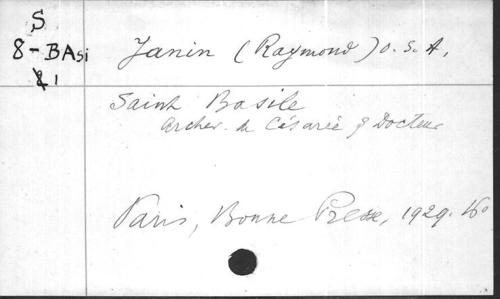 S
8-BAsi
1
Janin (Raymond) O.S.A,
Saint Basile
Archev. de Césarée & Docteur
Paris, Bonne Presse, 1929.